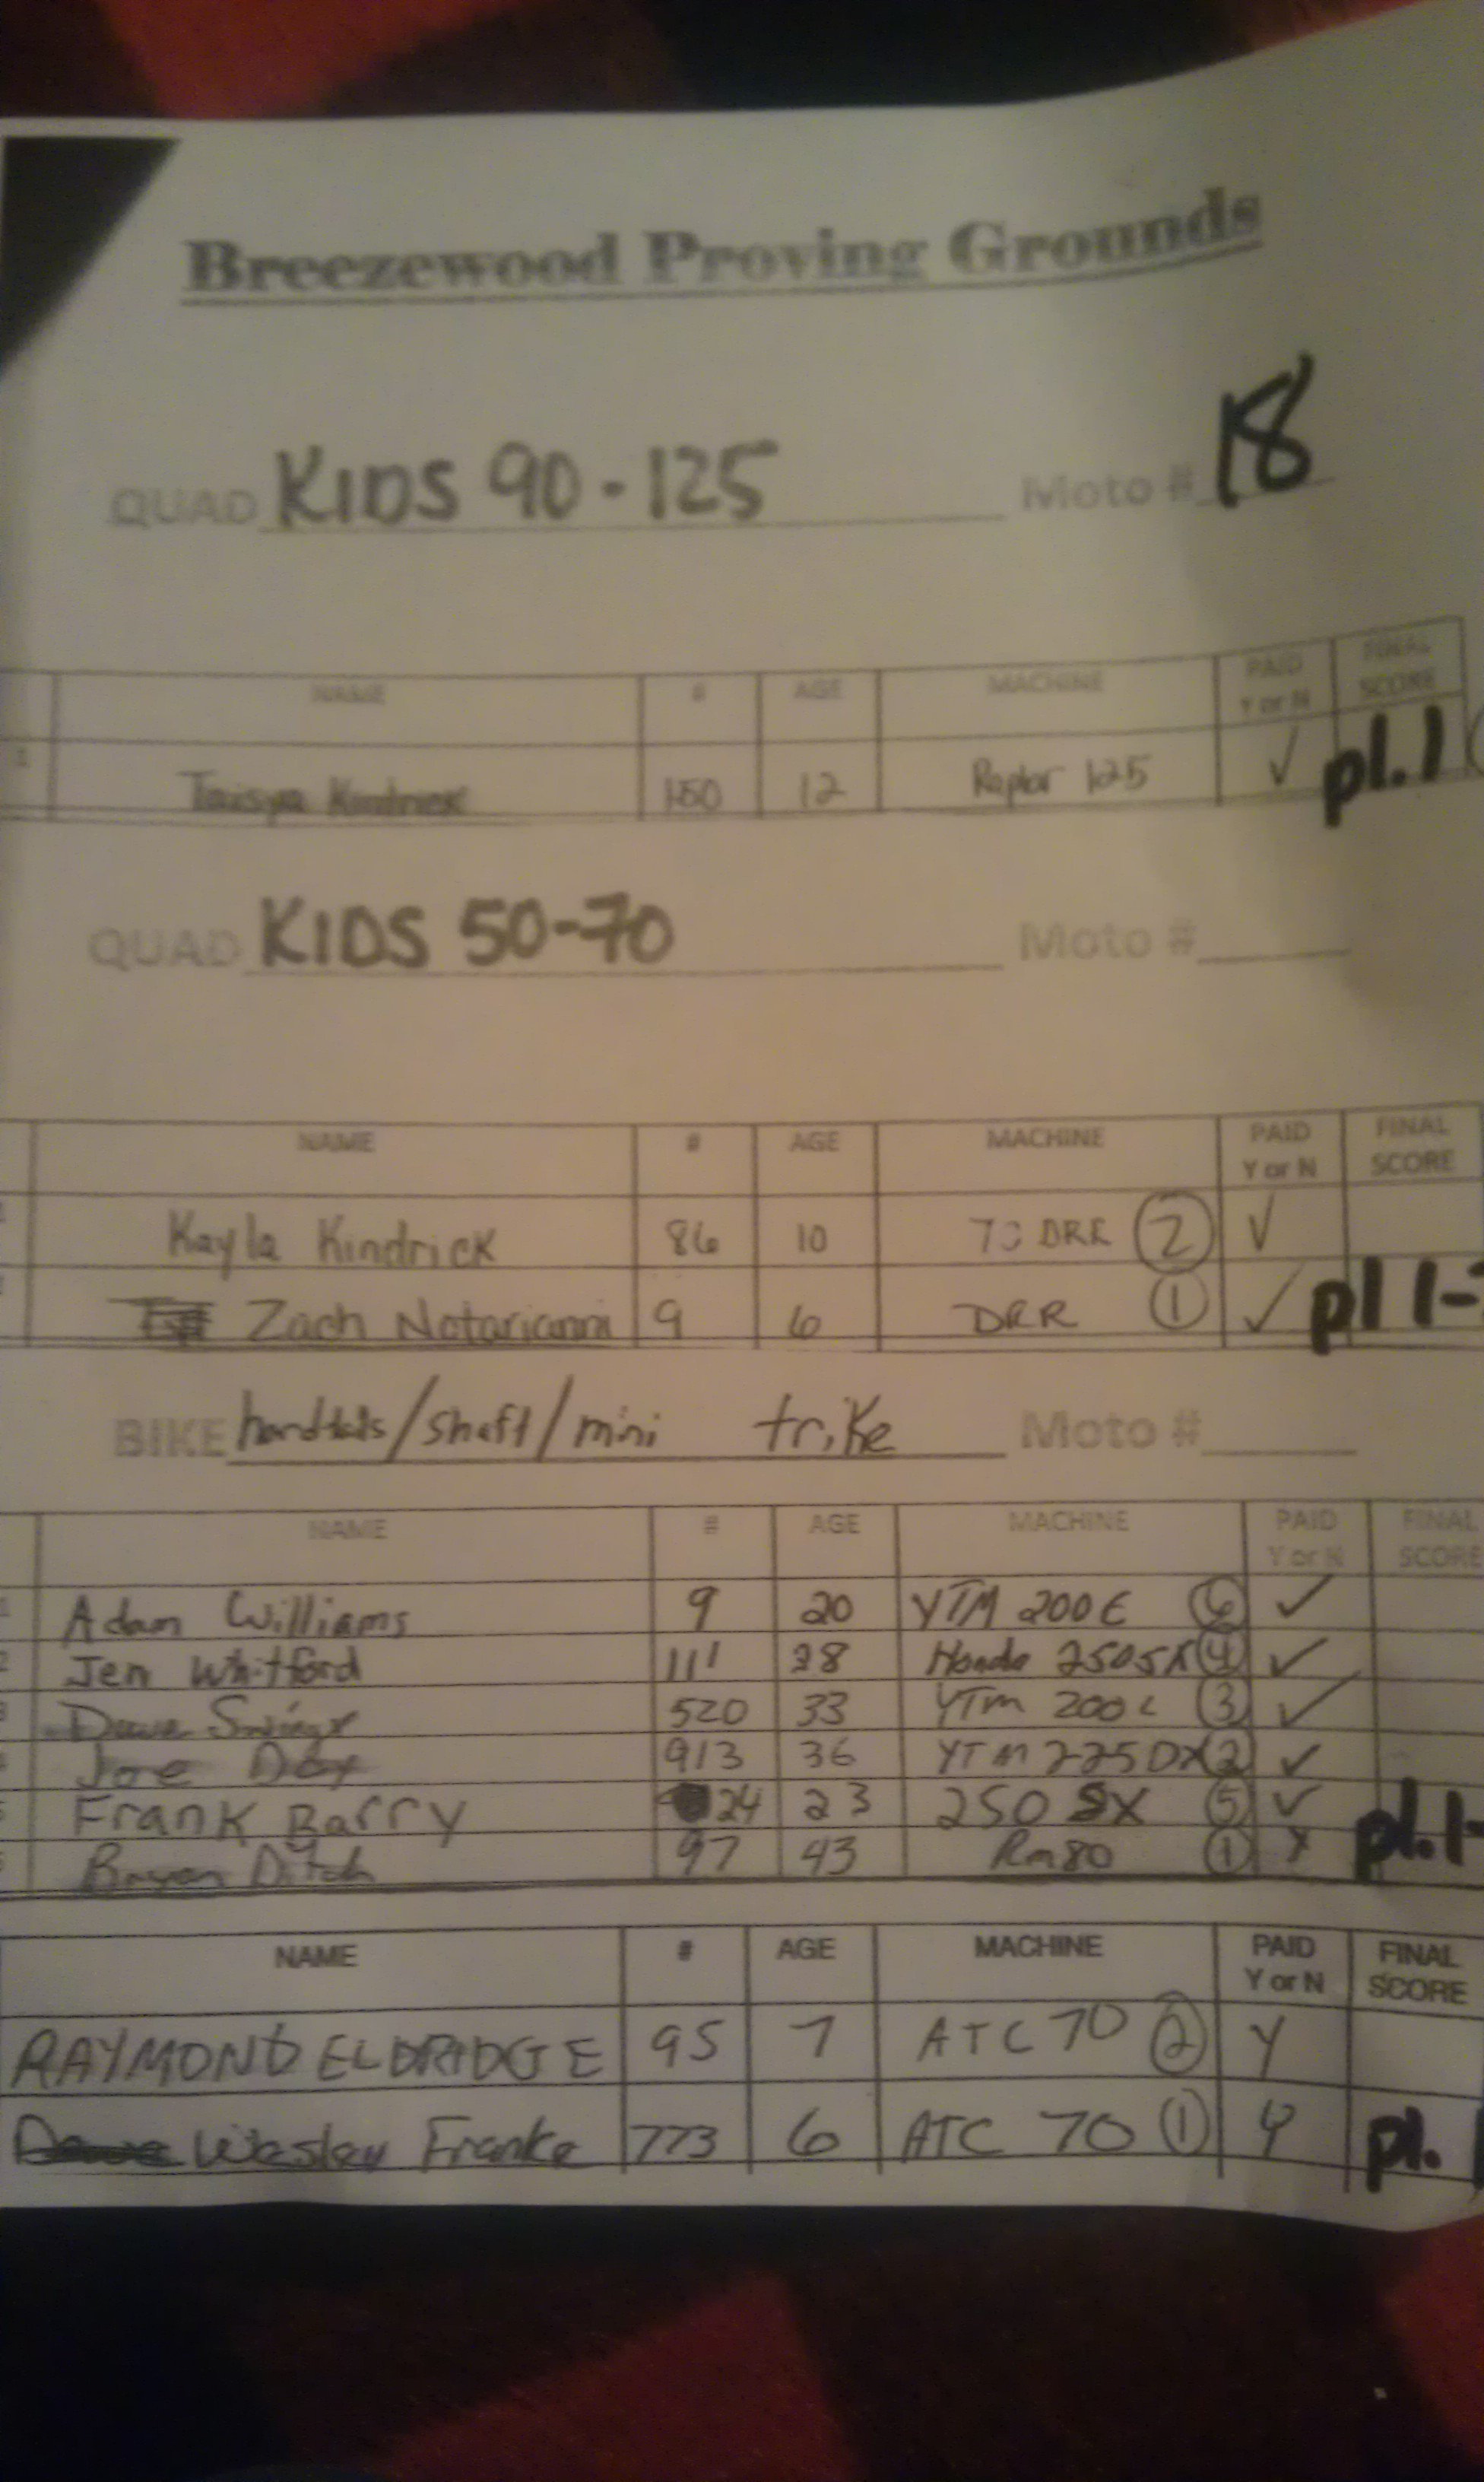 Breezewood Proving Grounds
QUAD KIDS 90-125 Moto # 18
NAME # AGE MACHINE PAID Y or N FINAL SCORE
1 150 12 Raptor 125 ✓ pl. 1
QUAD KIDS 50-70 Moto #
NAME # AGE MACHINE PAID Y or N FINAL SCORE
Kayla Kindrick 86 10 70 DRR 2 ✓
Zach Notarianni 9 6 DRR 1 ✓ pl 1-
BIKE hardtails/shaft/mini trike Moto #
NAME # AGE MACHINE PAID Y or N FINAL SCORE
1 Adam Williams 9 20 YTM 200E 6 ✓
2 Jen Whitford 111 28 Honda 250SX 4 ✓
3 520 33 YTM 200L 3 ✓
Joe 913 36 YTM 225DX 2 ✓
Frank Barry 24 23 250 SX 5 ✓ pl. 1-
Bryan Ditch 97 43 Rm80 1 Y
NAME # AGE MACHINE PAID Y or N FINAL SCORE
RAYMOND ELDRIDGE 95 7 ATC 70 2 Y
Wesley Franke 773 6 ATC 70 1 Y pl. 1